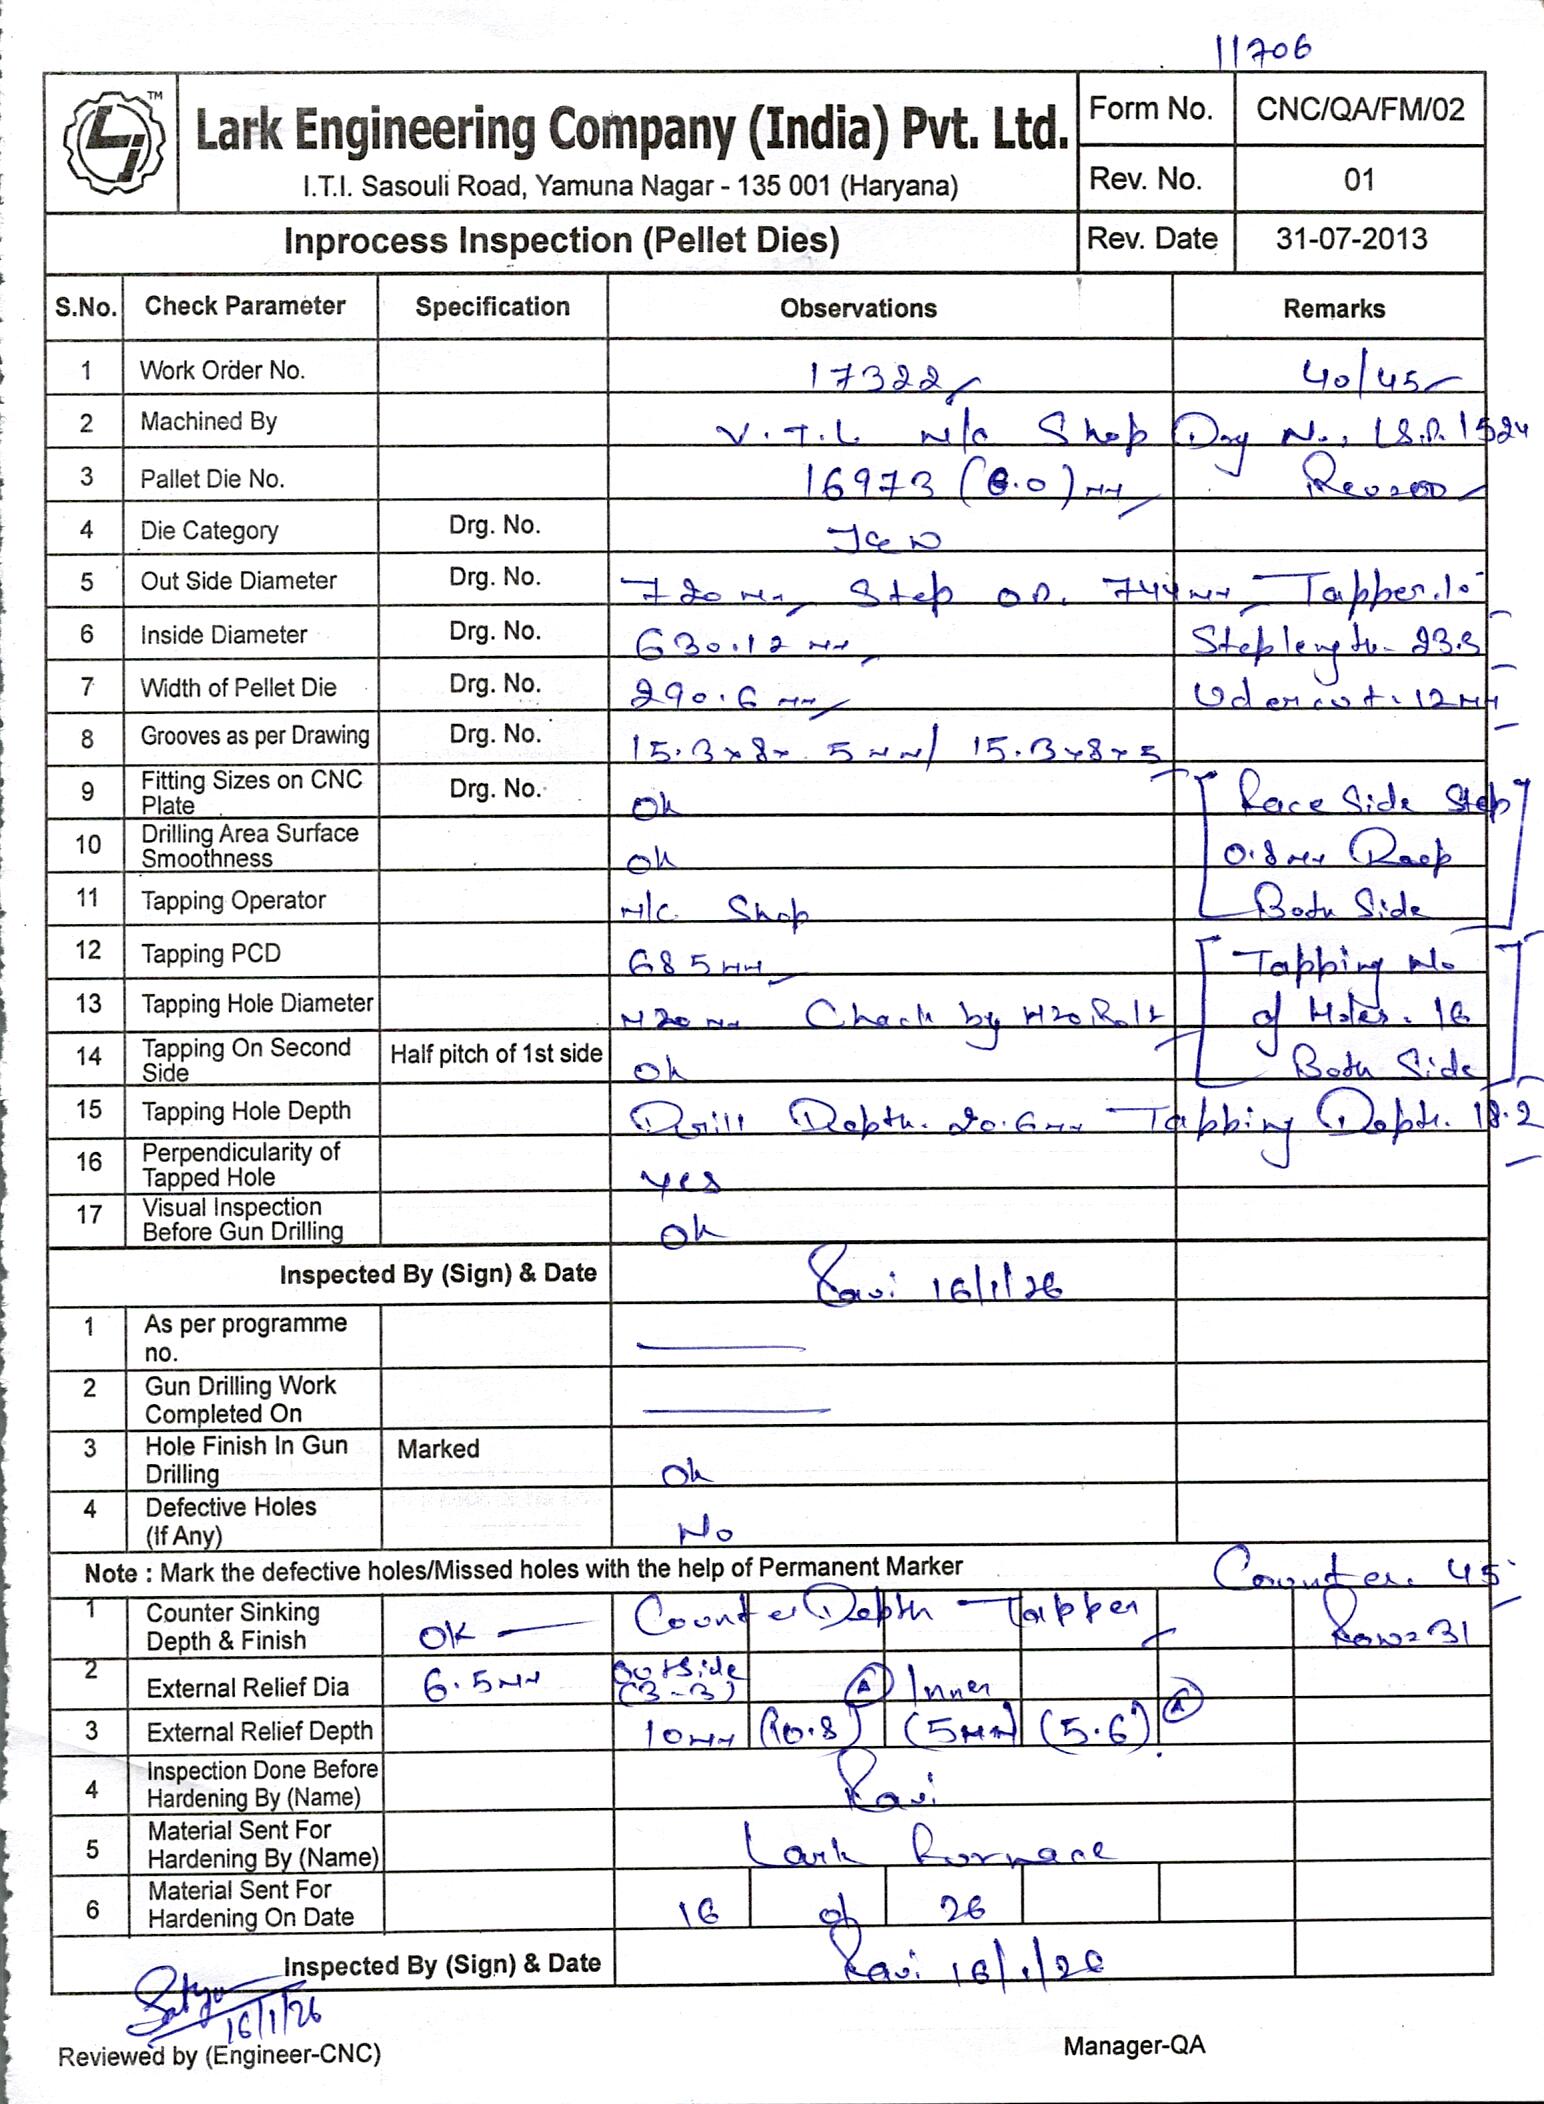 11706
TM
Lark Engineering Company (India) Pvt. Ltd.
I.T.I. Sasouli Road, Yamuna Nagar - 135 001 (Haryana)
Form No. CNC/QA/FM/02
Rev. No. 01
Inprocess Inspection (Pellet Dies) Rev. Date 31-07-2013
S.No. Check Parameter Specification Observations Remarks
1 Work Order No. 17322 40/45
2 Machined By V.T.L M/C Shop Drg No.
3 Pallet Die No. 16973 (6.0) mm
4 Die Category Drg. No.
5 Out Side Diameter Drg. No. 720 mm Step OD. 744 mm Tapper.10
6 Inside Diameter Drg. No. 630.12 mm Step length. 23.3
7 Width of Pellet Die Drg. No. 290.6 mm Udercut. 12 mm
8 Grooves as per Drawing Drg. No. 15.3x8x.5mm/ 15.3x8x5
9 Fitting Sizes on CNC Plate Drg. No. Ok Face Side Step
10 Drilling Area Surface Smoothness Ok 0.8 mm Both Side
11 Tapping Operator M/C Shop
12 Tapping PCD 685mm Tapping No
13 Tapping Hole Diameter M20 mm Chack by M20 Bolt of Holes. 16
14 Tapping On Second Side Half pitch of 1st side Ok Both Side
15 Tapping Hole Depth Drill Depth. 20.6mm Tapping Depth. 18.2
16 Perpendicularity of Tapped Hole Yes
17 Visual Inspection Before Gun Drilling Ok
Inspected By (Sign) & Date Ravi 16/1/26
1 As per programme no.
2 Gun Drilling Work Completed On
3 Hole Finish In Gun Drilling Marked Ok
4 Defective Holes (If Any) No
Note : Mark the defective holes/Missed holes with the help of Permanent Marker Counter. 45
1 Counter Sinking Depth & Finish OK Counter Depth Tapper Row=31
2 External Relief Dia 6.5mm Outside (3-3) A Inner A
3 External Relief Depth 10mm (10.8) (5mm) (5.6)
4 Inspection Done Before Hardening By (Name) Ravi
5 Material Sent For Hardening By (Name) Lark Furnace
6 Material Sent For Hardening On Date 16 01 26
Inspected By (Sign) & Date Ravi 16/1/26
Satya
16/1/26
Reviewed by (Engineer-CNC) Manager-QA